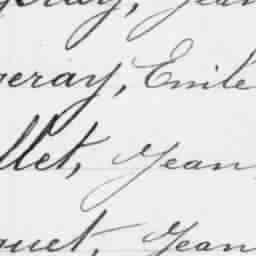 geray, Jean
geray, Emile
llet, Jean
quet, Jean